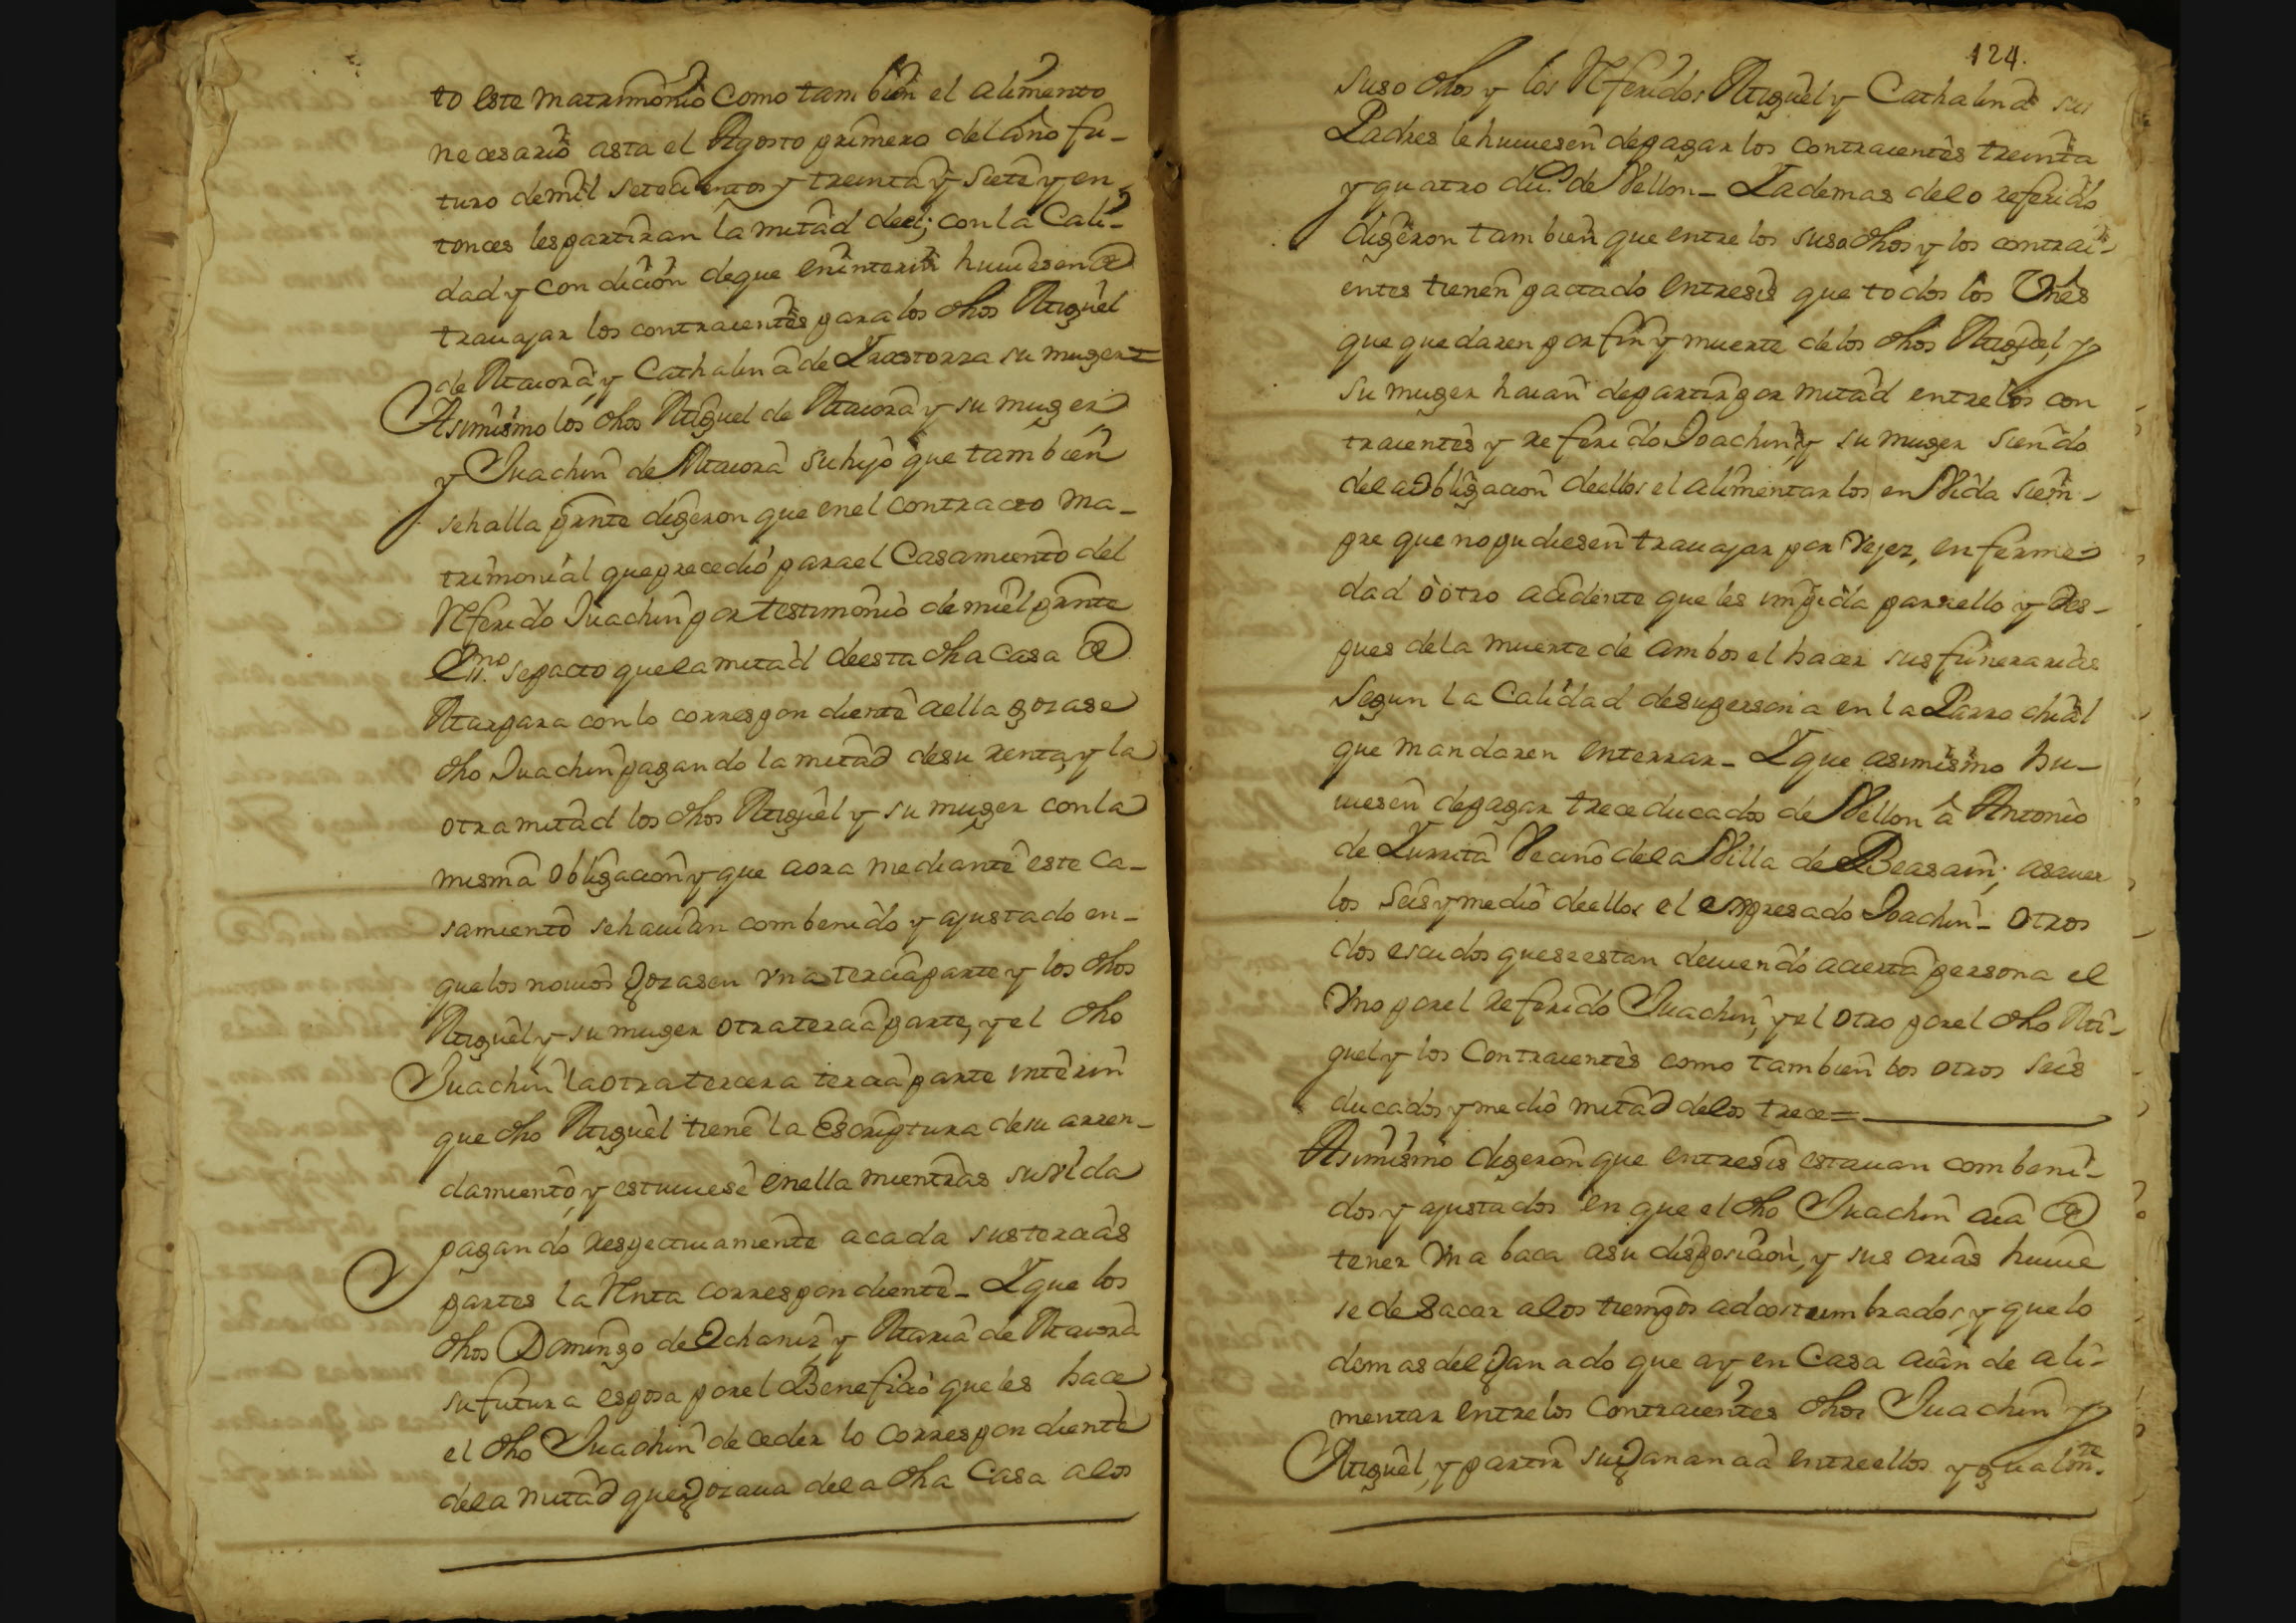 to este matrimonio como tambien el alimento
necesario asta el Agosto primero del año fu-
turo de mil setecientos y treinta y siete y en
tonces les partiran la mitad de el; con la Cali-
dad y condicion de que eninterin huuiesen de
trauajar los contraientes para los dhos Miguel
de Maiora, y Cathalina de Yrastorza su muger =
Asimismo los dhos Miguel de Maiora y su muger
y Juachin de Maiora su hijo que tambien
se halla pnte digeron que en el contracto ma-
trimonial que precedió para el Casamiento del
Referido Juachin por testimonio de mi el prnte
Ssno. se pacto que la mitad de esta dha casa de
con lo correspondiente a ella gozase
dho Juachin pagando la mitad de su renta, y la
otra mitad los dhos Miguel y su muger con la
misma obligacion y que aora mediante este ca-
samiento se hauian combenido y ajustado en-
que los nouios gozasen vna tercia parte y los dhos
Miguel y su muger otra tercia parte, y el dho
Juachin la otra tercera tercia parte interin
que dho Miguel tiene la Escriptura de su arren-
damiento, y estuuiese en ella mientras su vida
pagando respectiuamente a cada sus tercias
partes la Renta correspondiente - Y que los
dhos Domingo de Echaniz y Maria de Maiora
su futura esposa por el Beneficio que les hace
el dho Juachin de ceder lo correspondiente
de la mitad que gozaua de la dha Casa a los
124.
suso dhos y los Referidos Miguel y Cathalina sus
Padres le huuiesen de pagar los contraientes treinta
y quatro du.s de Vellon - Y ademas de lo referido
digeron tambien que entre los susodhos y los contrai-
entes tienen pactado entresis que todos los Vnes
que quedaren por fin y muerte de los dhos Miguel, y
su muger haian de partir por mitad entre los con
traientes y referido Joachin, y su muger siendo
de la obligacion de ellos el alimentarlos en Vida siem-
pre que no pudiesen trauajar por Vejez, enferme
dad ò otro acidente que les impida para ello y des-
pues de la muerte de ambos el hacer sus funerarias
Segun la Calidad de su persona en la Parrochial
que mandaren enterrar - Y que asimismo hu-
uiesen de pagar trece ducados de Vellon â Antonio
de Yurrita Vecino de la Villa de Beasain; asauer
los Seis y medio de ellos el expresado Joachin - otros
dos escudos que se estan deuiendo a cierta persona el
Vno por el referido Juachin, y el otro por el dho Mi-
guel y los Contraientes como tambien los otros seis
ducados y medio mitad de los trece =
Asimismo digeron que entresis estauan combeni-
dos y ajustados en que el dho Juachin aia de
tener Vna baca a su disposicion, y sus crias huuie
se de sacar a los tiempos adcostumbrados, y que lo
demas del ganado que ay en Casa aian de ali-
mentar entre los contraientes dhos Juachin y
Miguel, y partir su ganancia entre ellos ygualmte.